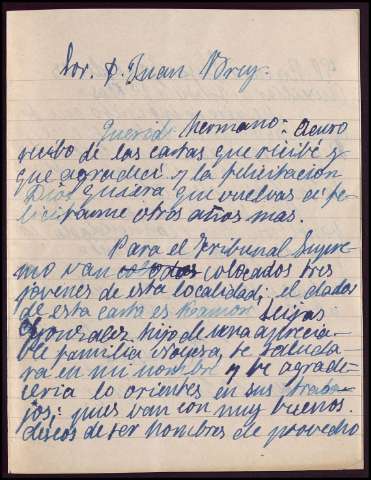 Sor. D. Juan Brey.
Querido hermano: Acuso
recibo de las cartas que recibí y
que agradecí y la felicitación
Dios quiera que vuelvas a fe-
licitarme otros años mas.
Para el Tribunal Supre-
mo van colocados tres
jovenes de esta localidad; el dador
de esta carta es Ramon Seijas
Gonzalez, hijo de una aprecia-
ble familia, te saluda
ra en mi nombre y te agrade-
ceria lo orientes en sus traba-
jos; pues van con muy buenos
deseos de ser hombres de provecho